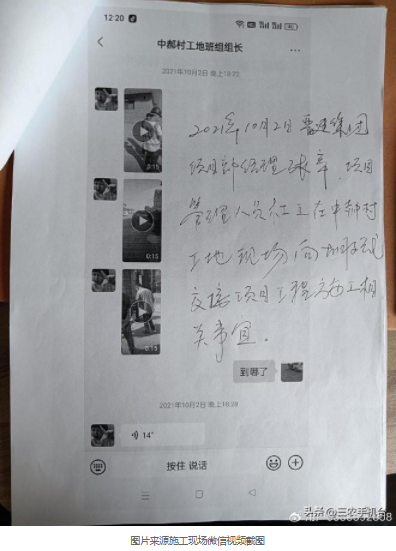 12:20
中郝村工地班组组长
...
2021年10月2日 晚上18:22
0:15
0:15
0:13
2021年10月2日晋建集团
项目部经理 章、项目
管理人员 在中郝村
工地现场向
交接项目工程施工相
关事宜。
到哪了
2021年10月2日 晚上18:39
14"
按住 说话
头条 @三农手机台
图片来源施工现场微信视频截图